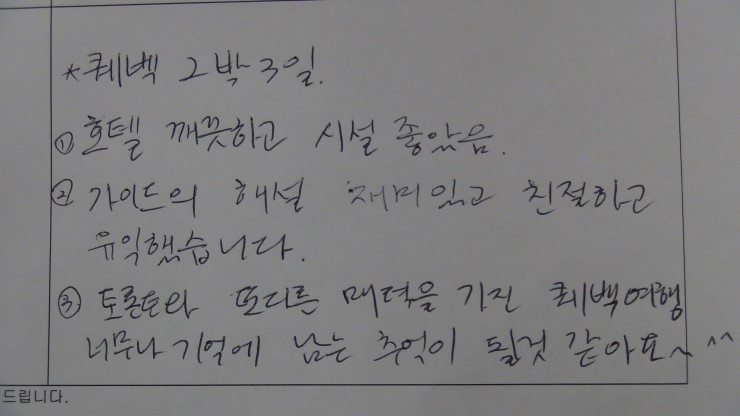 *퀘벡 2박3일.
① 호텔 깨끗하고 시설 좋았음.
② 가이드의 해설 재미있고 친절하고
유익했습니다.
③ 토론토와 또다른 매력을 가진 퀘백여행
너무나 기억에 남는 추억이 될것 같아요~ ^^
드립니다.